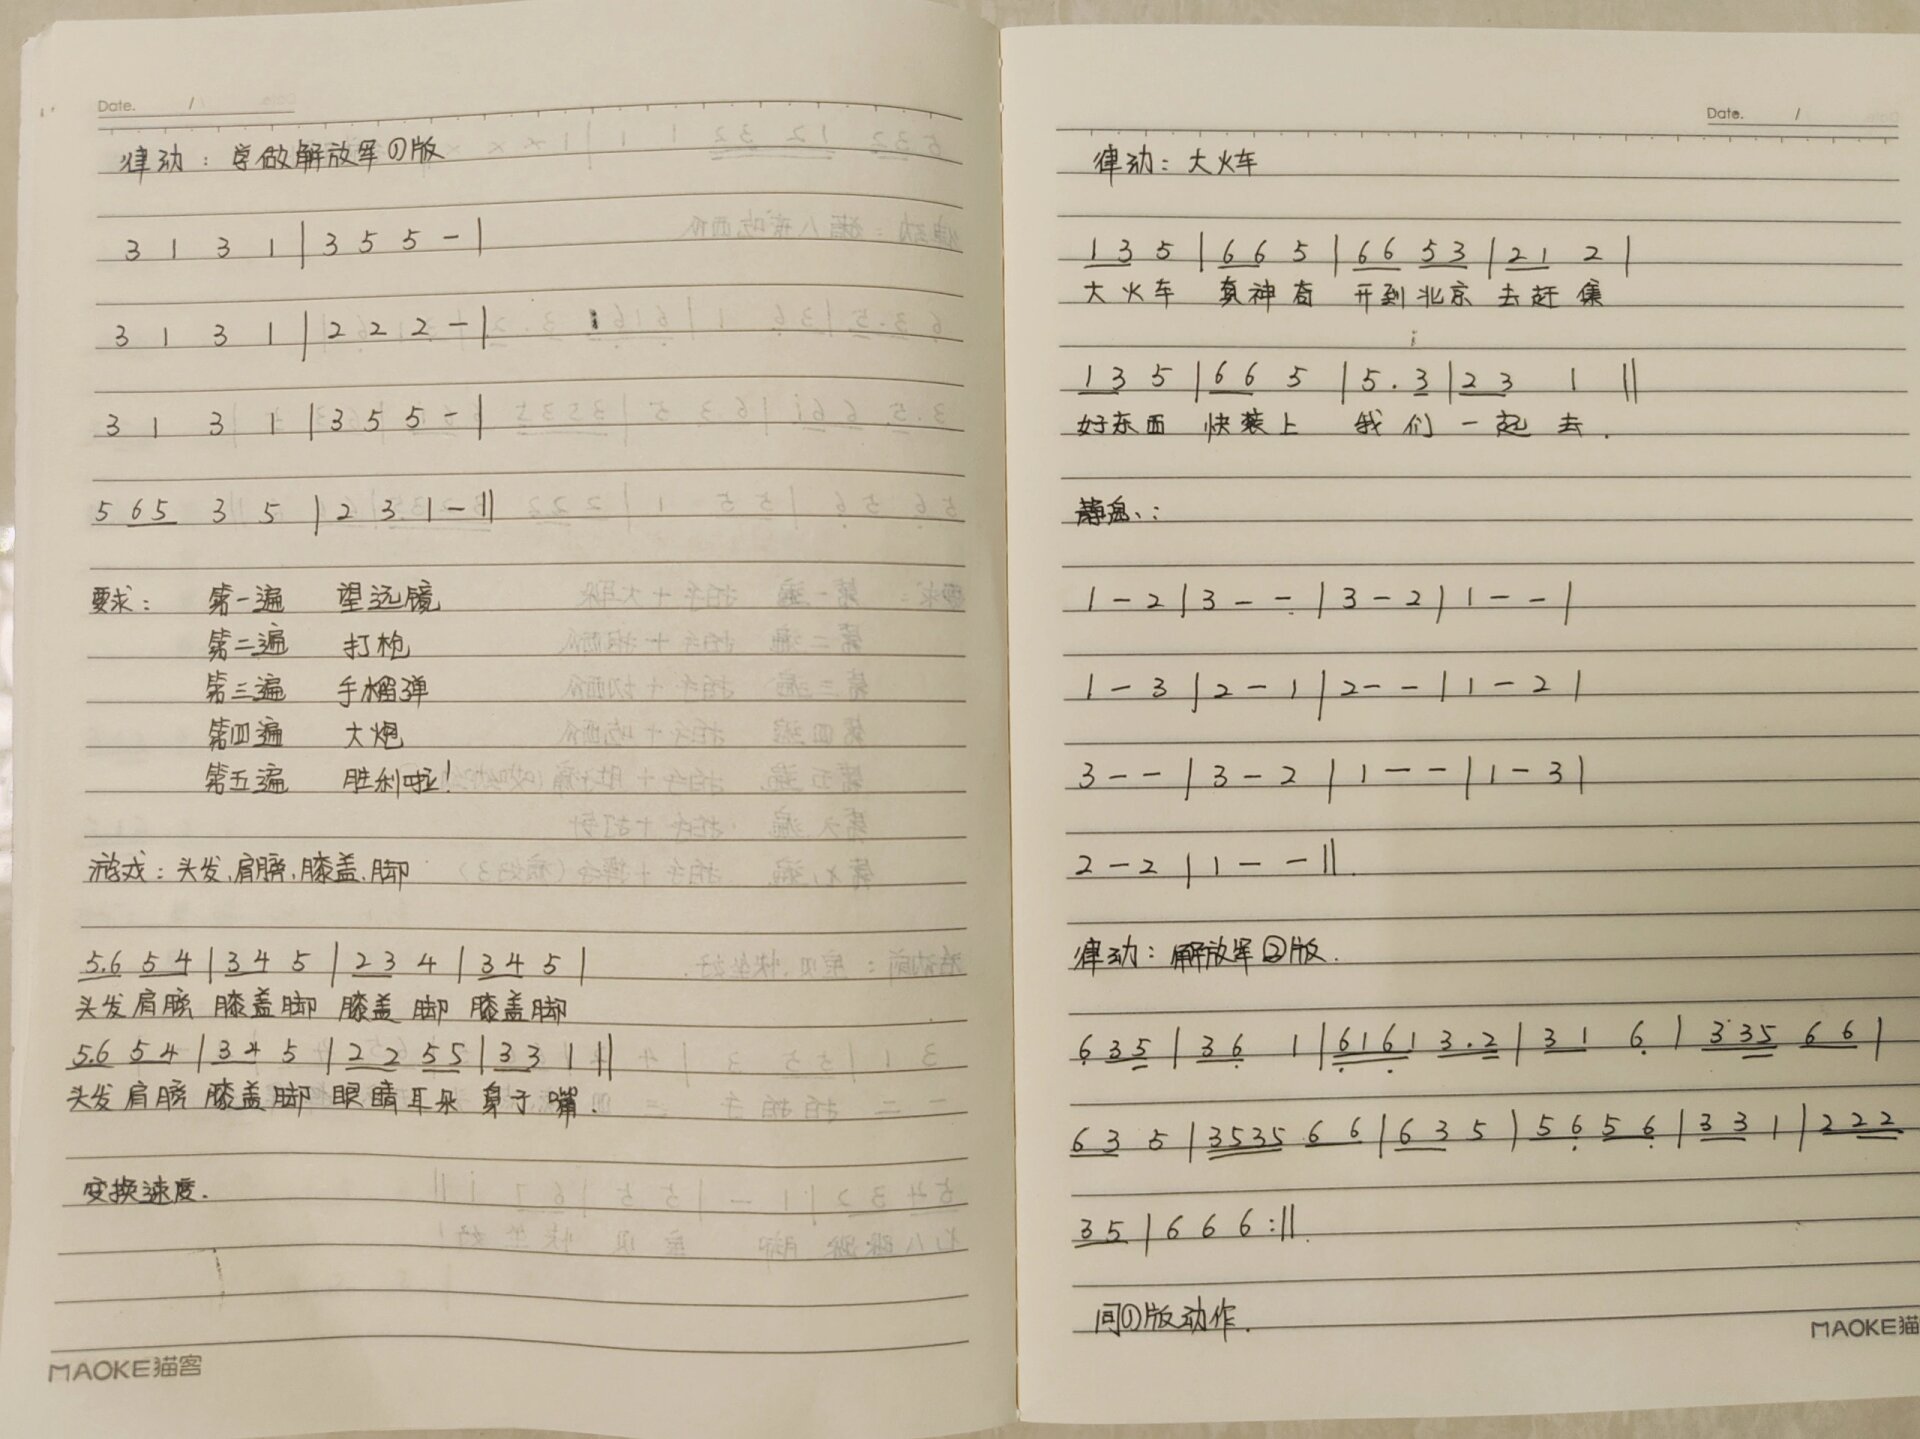 Date. /
律动：学做解放军①版
3 1 3 1 | 3 5 5 - |
3 1 3 1 | 2 2 2 - |
3 1 3 1 | 3 5 5 - |
5 65 3 5 | 2 3 1 - ||
要求： 第一遍 望远镜
第二遍 打枪
第三遍 手榴弹
第四遍 大炮
第五遍 胜利啦！
游戏：头发、肩膀、膝盖、脚
5.6 5 4 | 3 4 5 | 2 3 4 | 3 4 5 |
头发 肩膀 膝盖 脚 膝盖 脚 膝盖 脚
5.6 5 4 | 3 4 5 | 2 2 5 5 | 3 3 1 ||
头发 肩膀 膝盖 脚 眼睛 耳朵 鼻子 嘴.
变换速度.
MAOKE猫客
Date. /
律动：大火车
1 3 5 | 6 6 5 | 6 6 5 3 | 2 1 2 |
大火车 真神奇 开到北京 去赶集
i
1 3 5 | 6 6 5 | 5 . 3 | 2 3 1 ||
好东西 快装上 我们一起去.
静息：
1 - 2 | 3 - - | 3 - 2 | 1 - - |
1 - 3 | 2 - 1 | 2 - - | 1 - 2 |
3 - - | 3 - 2 | 1 - - | 1 - 3 |
2 - 2 | 1 - - ||.
律动：解放军②版.
6 3 5 | 3 6 1 | 6 1 6 1 3 . 2 | 3 1 6 | 3 3 5 6 6 |
6 3 5 | 3 5 3 5 6 6 | 6 3 5 | 5 6 5 6 | 3 3 1 | 2 2 2
3 5 | 6 6 6 :||.
同①版动作.
MAOKE猫